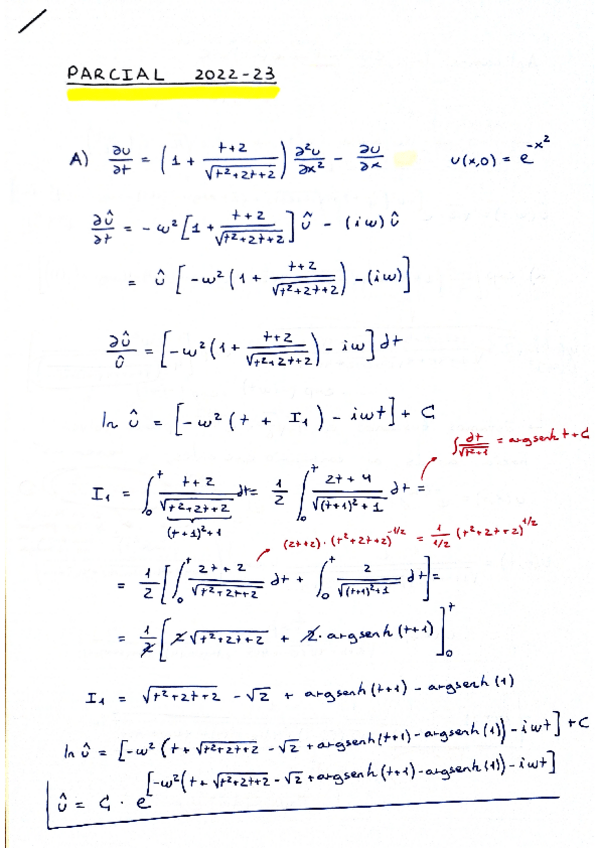 PARCIAL 2022-23
A) ∂u/∂t = (1 + (t+2)/√(t²+2t+2)) ∂²u/∂x² - ∂u/∂x    u(x,0) = e^(-x²)
∂û/∂t = -ω² [1 + (t+2)/√(t²+2t+2)] û - (iω) û
= û [-ω² (1 + (t+2)/√(t²+2t+2)) - (iω)]
∂û/û = [-ω² (1 + (t+2)/√(t²+2t+2)) - iω] dt
ln û = [-ω² (t + I₁) - iωt] + C
∫ dt/√(t²+1) = argsenh t + C
I₁ = ∫₀^t (t+2)/√(t²+2t+2) dt = 1/2 ∫₀^t (2t+4)/√((t+1)²+1) dt =
(t+1)²+1
(2t+2)·(t²+2t+2)^(-1/2) = 1/(1/2) (t²+2t+2)^(1/2)
= 1/2 [∫₀^t (2t+2)/√(t²+2t+2) dt + ∫₀^t 2/√((t+1)²+1) dt] =
= 1/2 [2√(t²+2t+2) + 2·argsenh(t+1)]₀^t
I₁ = √(t²+2t+2) - √2 + argsenh(t+1) - argsenh(1)
ln û = [-ω² (t + √(t²+2t+2) - √2 + argsenh(t+1) - argsenh(1)) - iωt] + C
û = C · e^[-ω² (t + √(t²+2t+2) - √2 + argsenh(t+1) - argsenh(1)) - iωt]